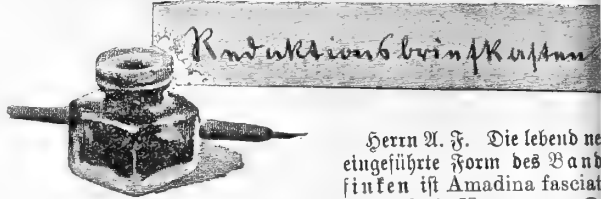 Redaktionsbriefkasten
Herrn A. F. Die lebend ne
eingeführte Form des Band
finken ist Amadina fasciat